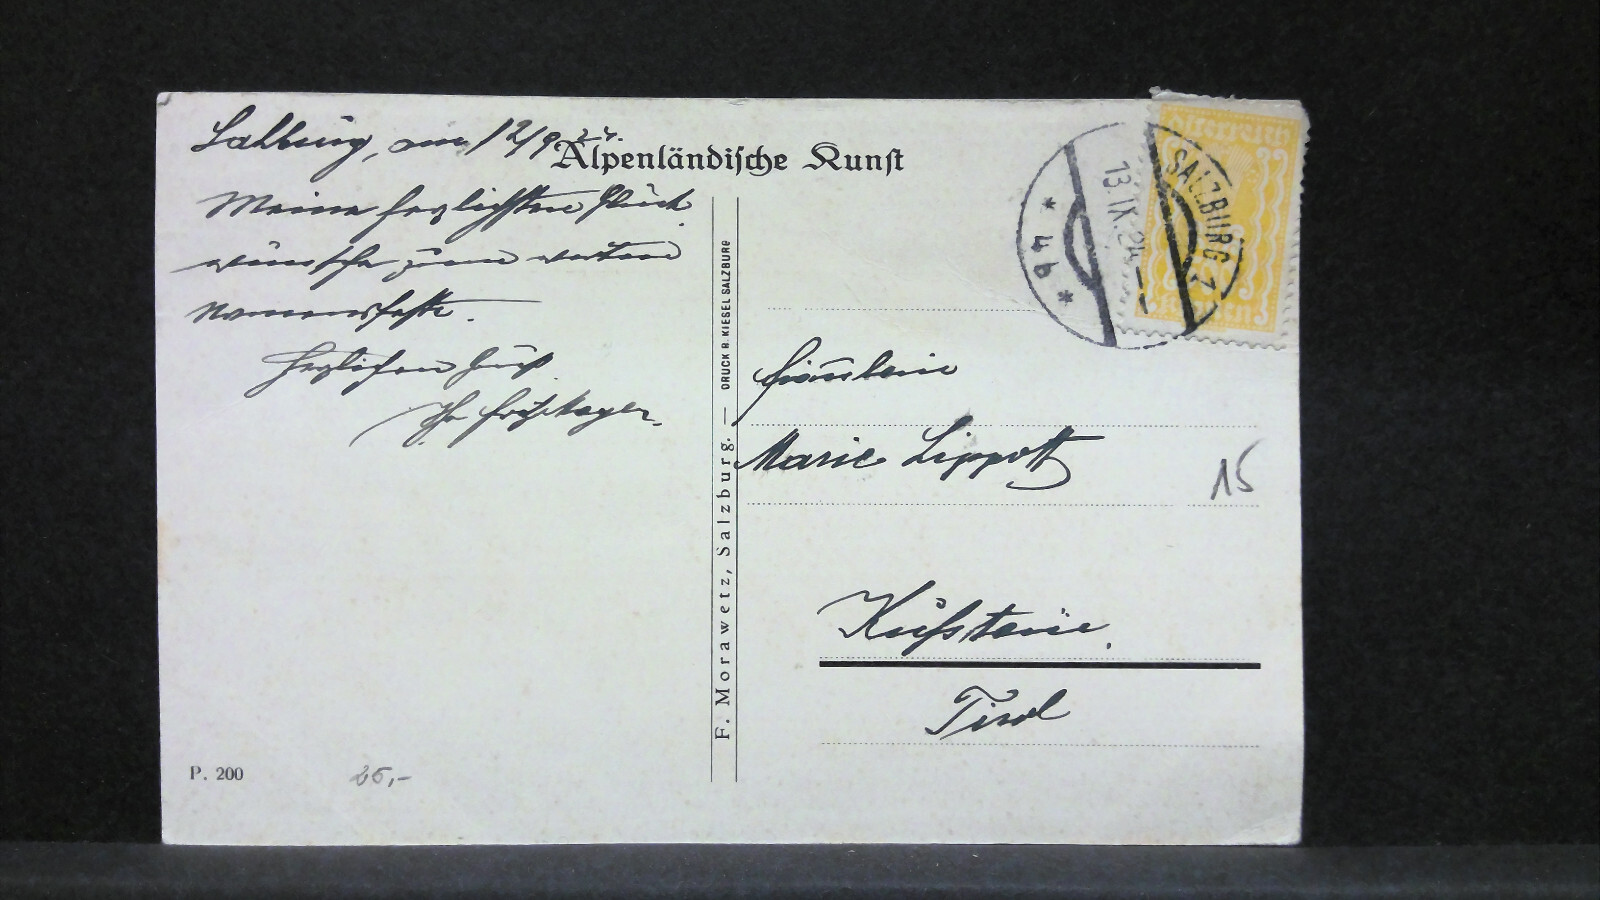 Salzburg, am 12/9 24.
Alpenländische Kunst
Meine herzlichsten Glück
wünsche zum werten
Namensfeste.
Herzlichen Gruß
Ihr Fritz Mayer
Österreich
Kronen
SALZBURG 1
13.IX.24
* 4b *
Fräulein
Marie Lippott
15
Kufstein.
Tirol
F. Morawetz, Salzburg. — DRUCK R. KIESEL SALZBURG
P. 200
25,-